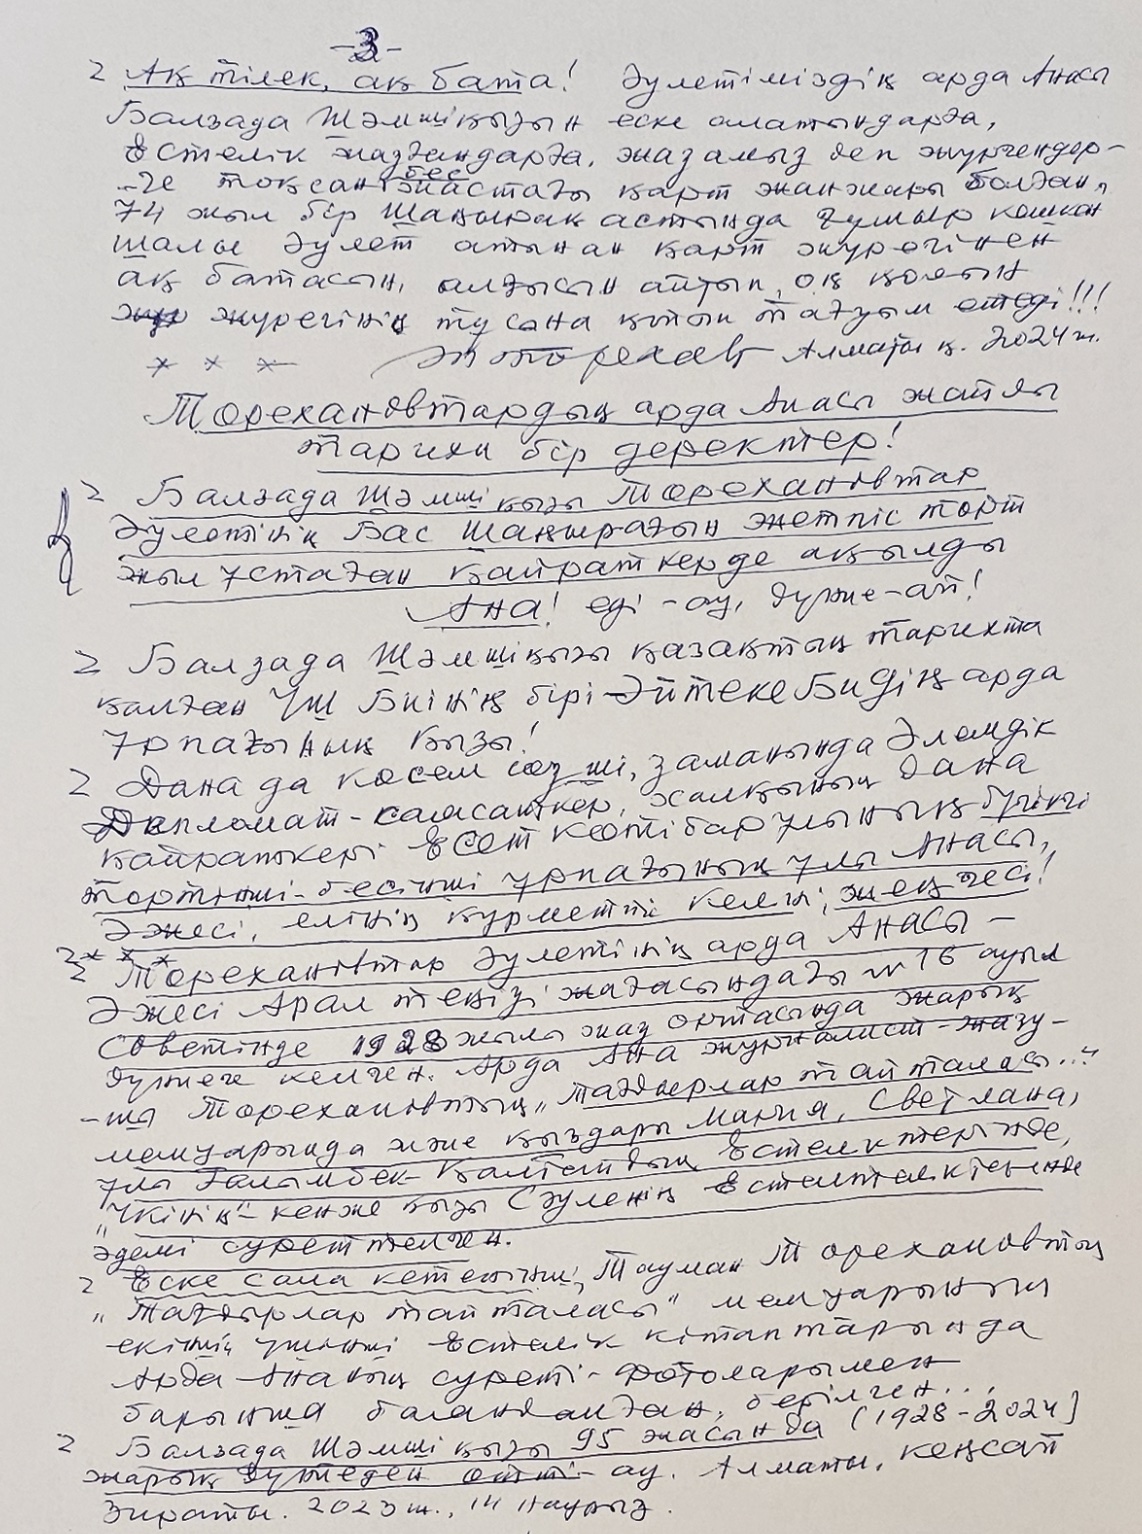 -3-
2 Ақ тілек, ақ бата! Әулетіміздің арда Анасы
Балзада Шәмшіқызын еске алатындарға,
Естелік жазғандарға, жазамыз деп жүргендер-
-ге тоқсан бес жастағы қарт жанжары болған,
74 жыл бір Шаңырақ астында ғұмыр кешкен
шалы Әулет атынан қарт жүрегінен
ақ батасын, алғысын айтып, оң қолын
жүрегінің тұсына қойып тағзым етеді!!!
* * * Т Төреханов Алматы қ. 2024 ж.
Төрехановтардың арда Анасы жайлы
тарихи бір деректер!
2 Балзада Шәмшіқызы Төрехановтар
Әулетінің Бас Шаңырағын жетпіс төрт
жыл ұстаған қайраткерде ақылды
Ана! еді-ау, дүние-ай!
2 Балзада Шәмшіқызы қазақтың тарихта
қалған Үш Биінің бірі Әйтеке Бидің арда
ұрпағының қызы!
2 Дана да көсем сөзші, заманында Әлемдік
Дипломат-саясаткер, халқының дана
қайраткері Есет Көтібарұлының бүгінгі
төртінші-бесінші ұрпағының ұлы Анасы,
Әжесі, елінің құрметті келіні, жеңгесі!
2 * * * Төрехановтар Әулетінің арда Анасы -
Әжесі Арал теңізі жағасындағы №16 ауыл
Советінде 1928 жылы жаз ортасында жарық
дүниеге келген. Арда Ана журналист-жазу-
-шы Төрехановтың „Тағдырлар тайталасы..."
мемуарында және қыздары Мария, Светлана,
ұлы Ғалымбек-Қалтайдың Естеліктерінде,
кенже қызы Сәуленің
әдемі суреттелген.
2 Еске сала кетейінші, Тауман Төрехановтың
„Тағдырлар тайталасы" мемуарының
екінші, үшінші Естелік кітаптарында
Арда Ананың суреті-Фотоларымен
барынша баяндалған, берілген...
2 Балзада Шәмшіқызы 95 жасында (1928-2024)
жарық дүниеден өтті-ау. Алматы, кеңсай
Зираты. 2023 ж., 14 наурыз.